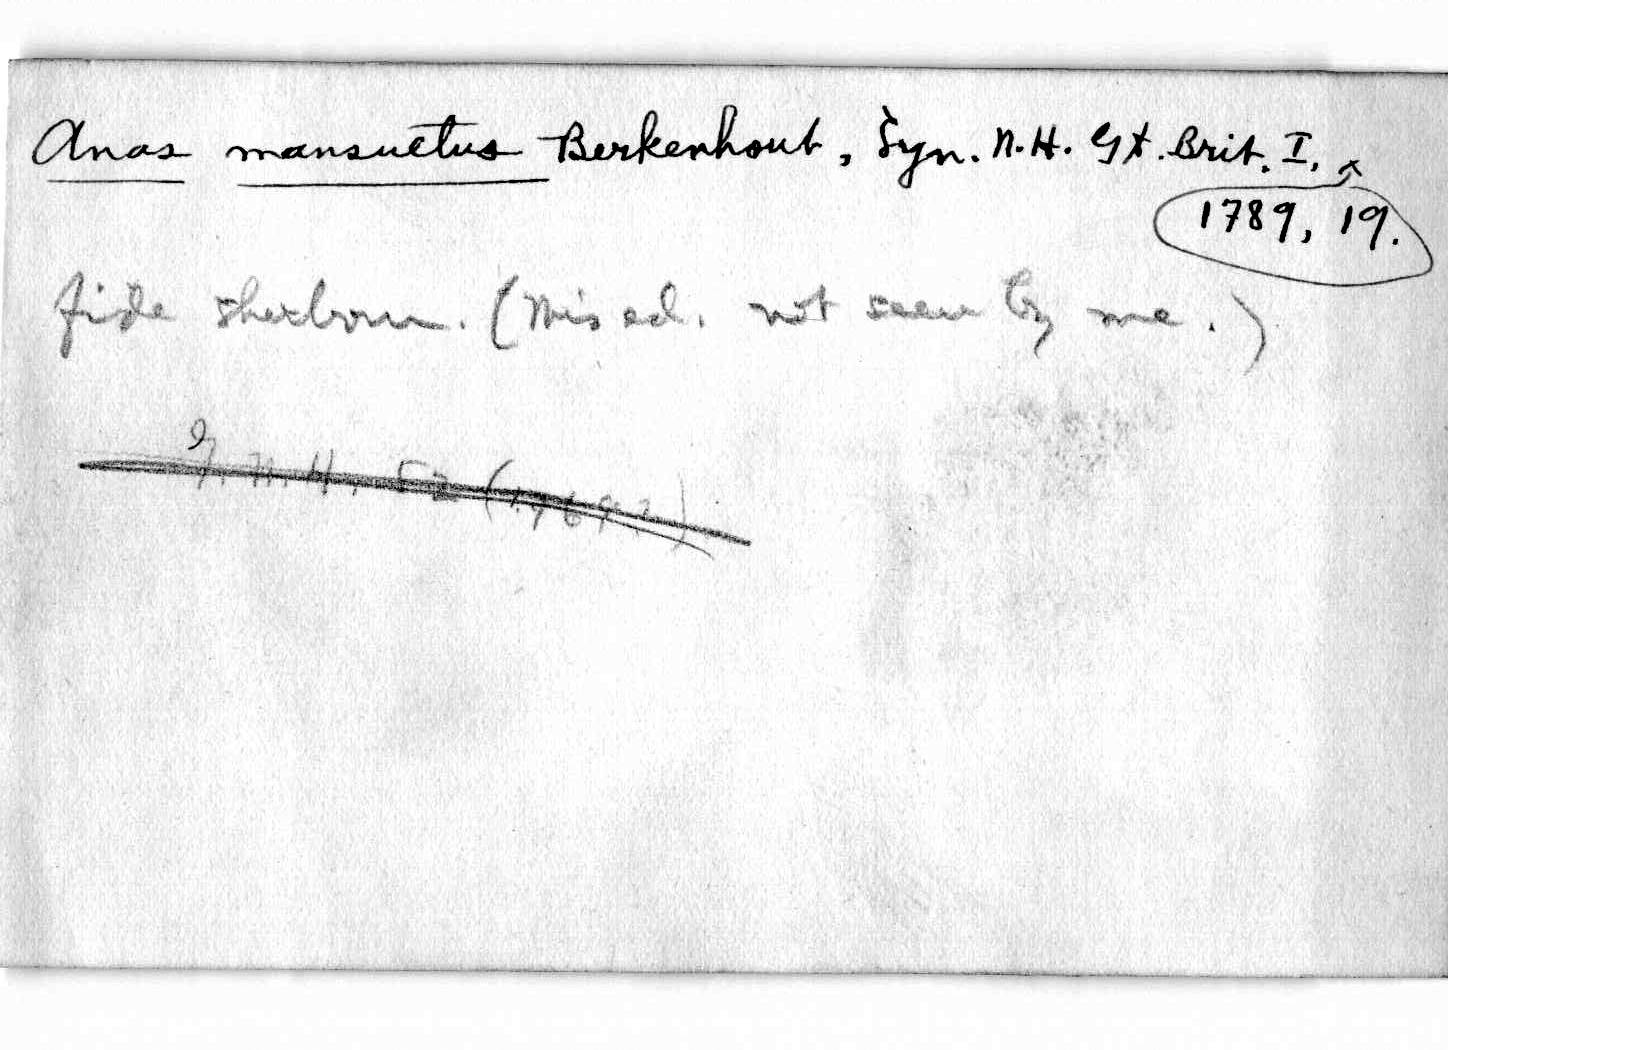 Anas mansuetus Berkenhout, Syn. N.H. Gt. Brit. I,
1789, 19.
fide Sherborn. (this ed. not seen by me.)